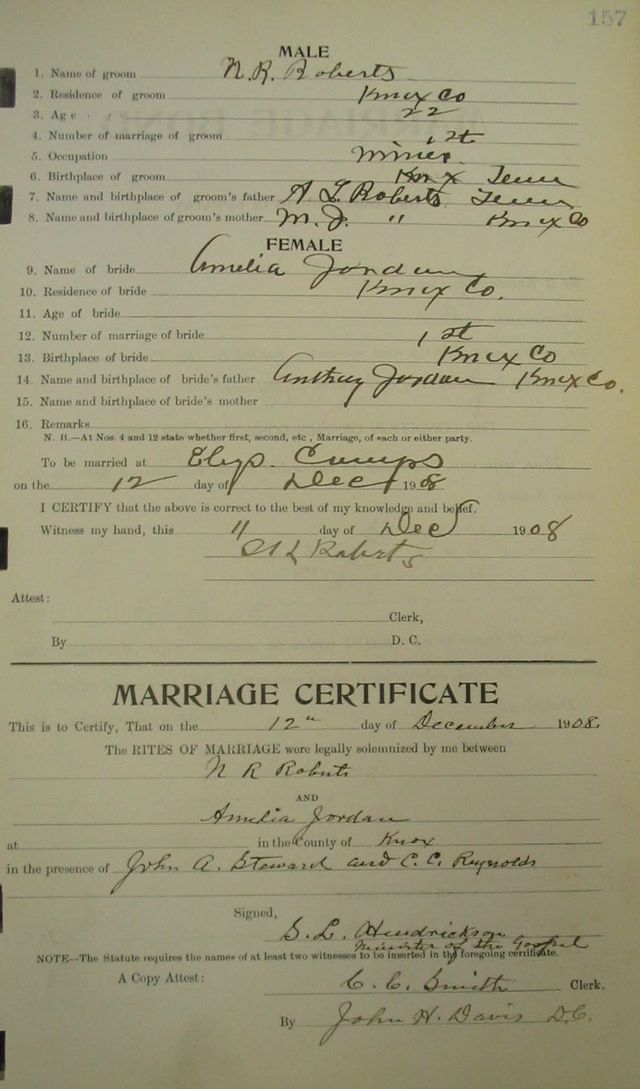 157
MALE
1. Name of groom N. R. Roberts
2. Residence of groom Knox Co
3. Age 22
4. Number of marriage of groom 1st
5. Occupation miner.
6. Birthplace of groom Knox Tenn
7. Name and birthplace of groom's father A L Roberts Tenn
8. Name and birthplace of groom's mother M. J. " Knox Co
FEMALE
9. Name of bride Amelia Jordan
10. Residence of bride Knox Co.
11. Age of bride
12. Number of marriage of bride 1st
13. Birthplace of bride Knox Co
14. Name and birthplace of bride's father Anthny Jordan Knox Co.
15. Name and birthplace of bride's mother
16. Remarks
N. B.—At Nos. 4 and 12 state whether first, second, etc, Marriage, of each or either party.
To be married at Elys. Camps
on the 12 day of Dec 1908
I CERTIFY that the above is correct to the best of my knowledge and belief.
Witness my hand, this 11 day of Dec 1908
A L Roberts
Attest:
Clerk,
By D. C.
MARRIAGE CERTIFICATE
This is to Certify, That on the 12" day of December 1908.
The RITES OF MARRIAGE were legally solemnized by me between
N R Roberts
AND
Amelia Jordan
at in the County of Knox
in the presence of John A. Steward and C. C. Reynolds
Signed,
S. L. Hendrickson
Minister of the Gospel
NOTE--The Statute requires the names of at least two witnesses to be inserted in the foregoing certificate.
A Copy Attest: C. C. Smith Clerk.
By John H. Davis D.C.